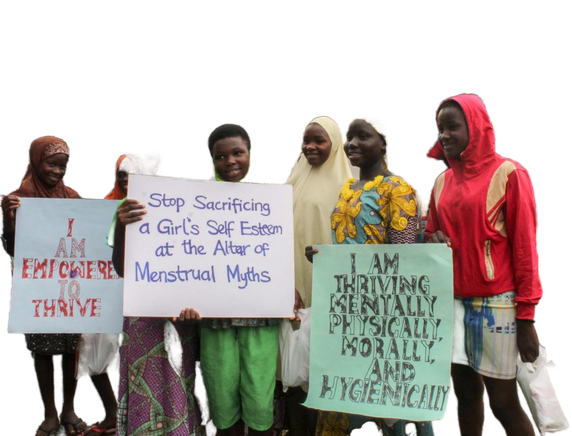 I
AM
EMPOWERE
TO
THRIVE
Stop Sacrificing
a Girl's Self Esteem
at the Altar of
Menstrual Myths
I AM
THRIVING
MENTALLY
PHYSICALLY,
MORALLY,
AND
HYGIENICALLY